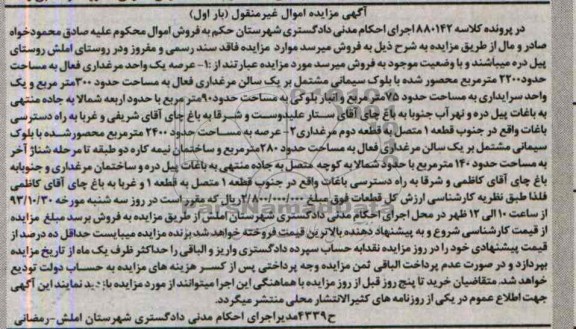 آگهی مزایده اموال غیرمنقول (بار اول)
در پرونده کلاسه ۸۸۰۱۴۲ اجرای احکام مدنی دادگستری شهرستان حکم به فروش اموال محکوم علیه صادق محمودخواه
صادر و مال از طریق مزایده به شرح ذیل به فروش میرسد موارد مزایده فاقد سند رسمی و مفروز ودر روستای املش روستای
پیل دره میباشند و با وضعیت موجود به فروش میرسد مورد مزایده عبارتند از :۱- عرصه یک واحد مرغداری فعال به مساحت
حدود۲۲۰۰ مترمربع محصور شده با بلوک سیمانی مشتمل بر یک سالن مرغداری فعال به مساحت حدود ۳۰۰متر مربع و یک
واحد سرایداری به مساحت حدود ۷۵متر مربع و انبار بلوکی به مساحت حدود۹۰متر مربع با حدود اربعه شمالا به جاده منتهی
به باغات پیل دره و نهر آب جنوبا به باغ چای آقای ستار علیدوست و شرقا به باغ چای آقای شریفی و غربا به راه دسترسی
باغات واقع در جنوب قطعه ۱ متصل به قطعه دوم مرغداری۲- عرصه به مساحت حدود ۲۴۰۰ مترمربع محصورشده با بلوک
سیمانی مشتمل بر یک سالن مرغداری فعال به مساحت حدود ۲۸۰مترمربع و ساختمان نیمه کاره دو طبقه تا مرحله شناژ آخر
به مساحت حدود ۱۴۰ مترمربع با حدود شمالا به کوچه متصل به جاده منتهی به باغات پیل دره و ساختمان مرغداری و جنوبابه
باغ چای آقای کاظمی و شرقا به راه دسترسی باغات واقع در جنوب قطعه ۱ متصل به قطعه ۱ و غربا به باغ چای آقای کاظمی
فلذا طبق نظریه کارشناسی ارزش کل قطعات فوق مبلغ ۲/۸۰۰/۰۰۰/۰۰۰ریال که مقرر است در روز سه شنبه مورخه ۹۳/۱۰/۳۰
از ساعت ۱۰ الی ۱۲ ظهر در محل اجرای احکام مدنی دادگستری شهرستان املش از طریق مزایده به فروش برسد مبلغ مزایده
از قیمت کارشناسی شروع و به پیشنهاد دهنده بالاترین قیمت فروخته خواهد شد.برنده مزایده میبایست حداقل ده درصد از
قیمت پیشنهادی خود را در روز مزایده نقدابه حساب سپرده دادگستری واریز و الباقی را حداکثر ظرف یک ماه از تاریخ مزایده
بپردازد و در صورت عدم پرداخت الباقی ثمن مزایده وجه پرداختی پس از کسر هزینه های مزایده به حساب دولت تودیع
خواهد شد. متقاضیان خرید تا پنج روز قبل از روز مزایده با هماهنگی این اجرا میتوانند از مورد مزایده بازدید نمایند این آگهی
جهت اطلاع عموم در یکی از روزنامه های کثیرالانتشار محلی منتشر میگردد.
ح۴۳۳۹مدیراجرای احکام مدنی دادگستری شهرستان املش-رمضانی